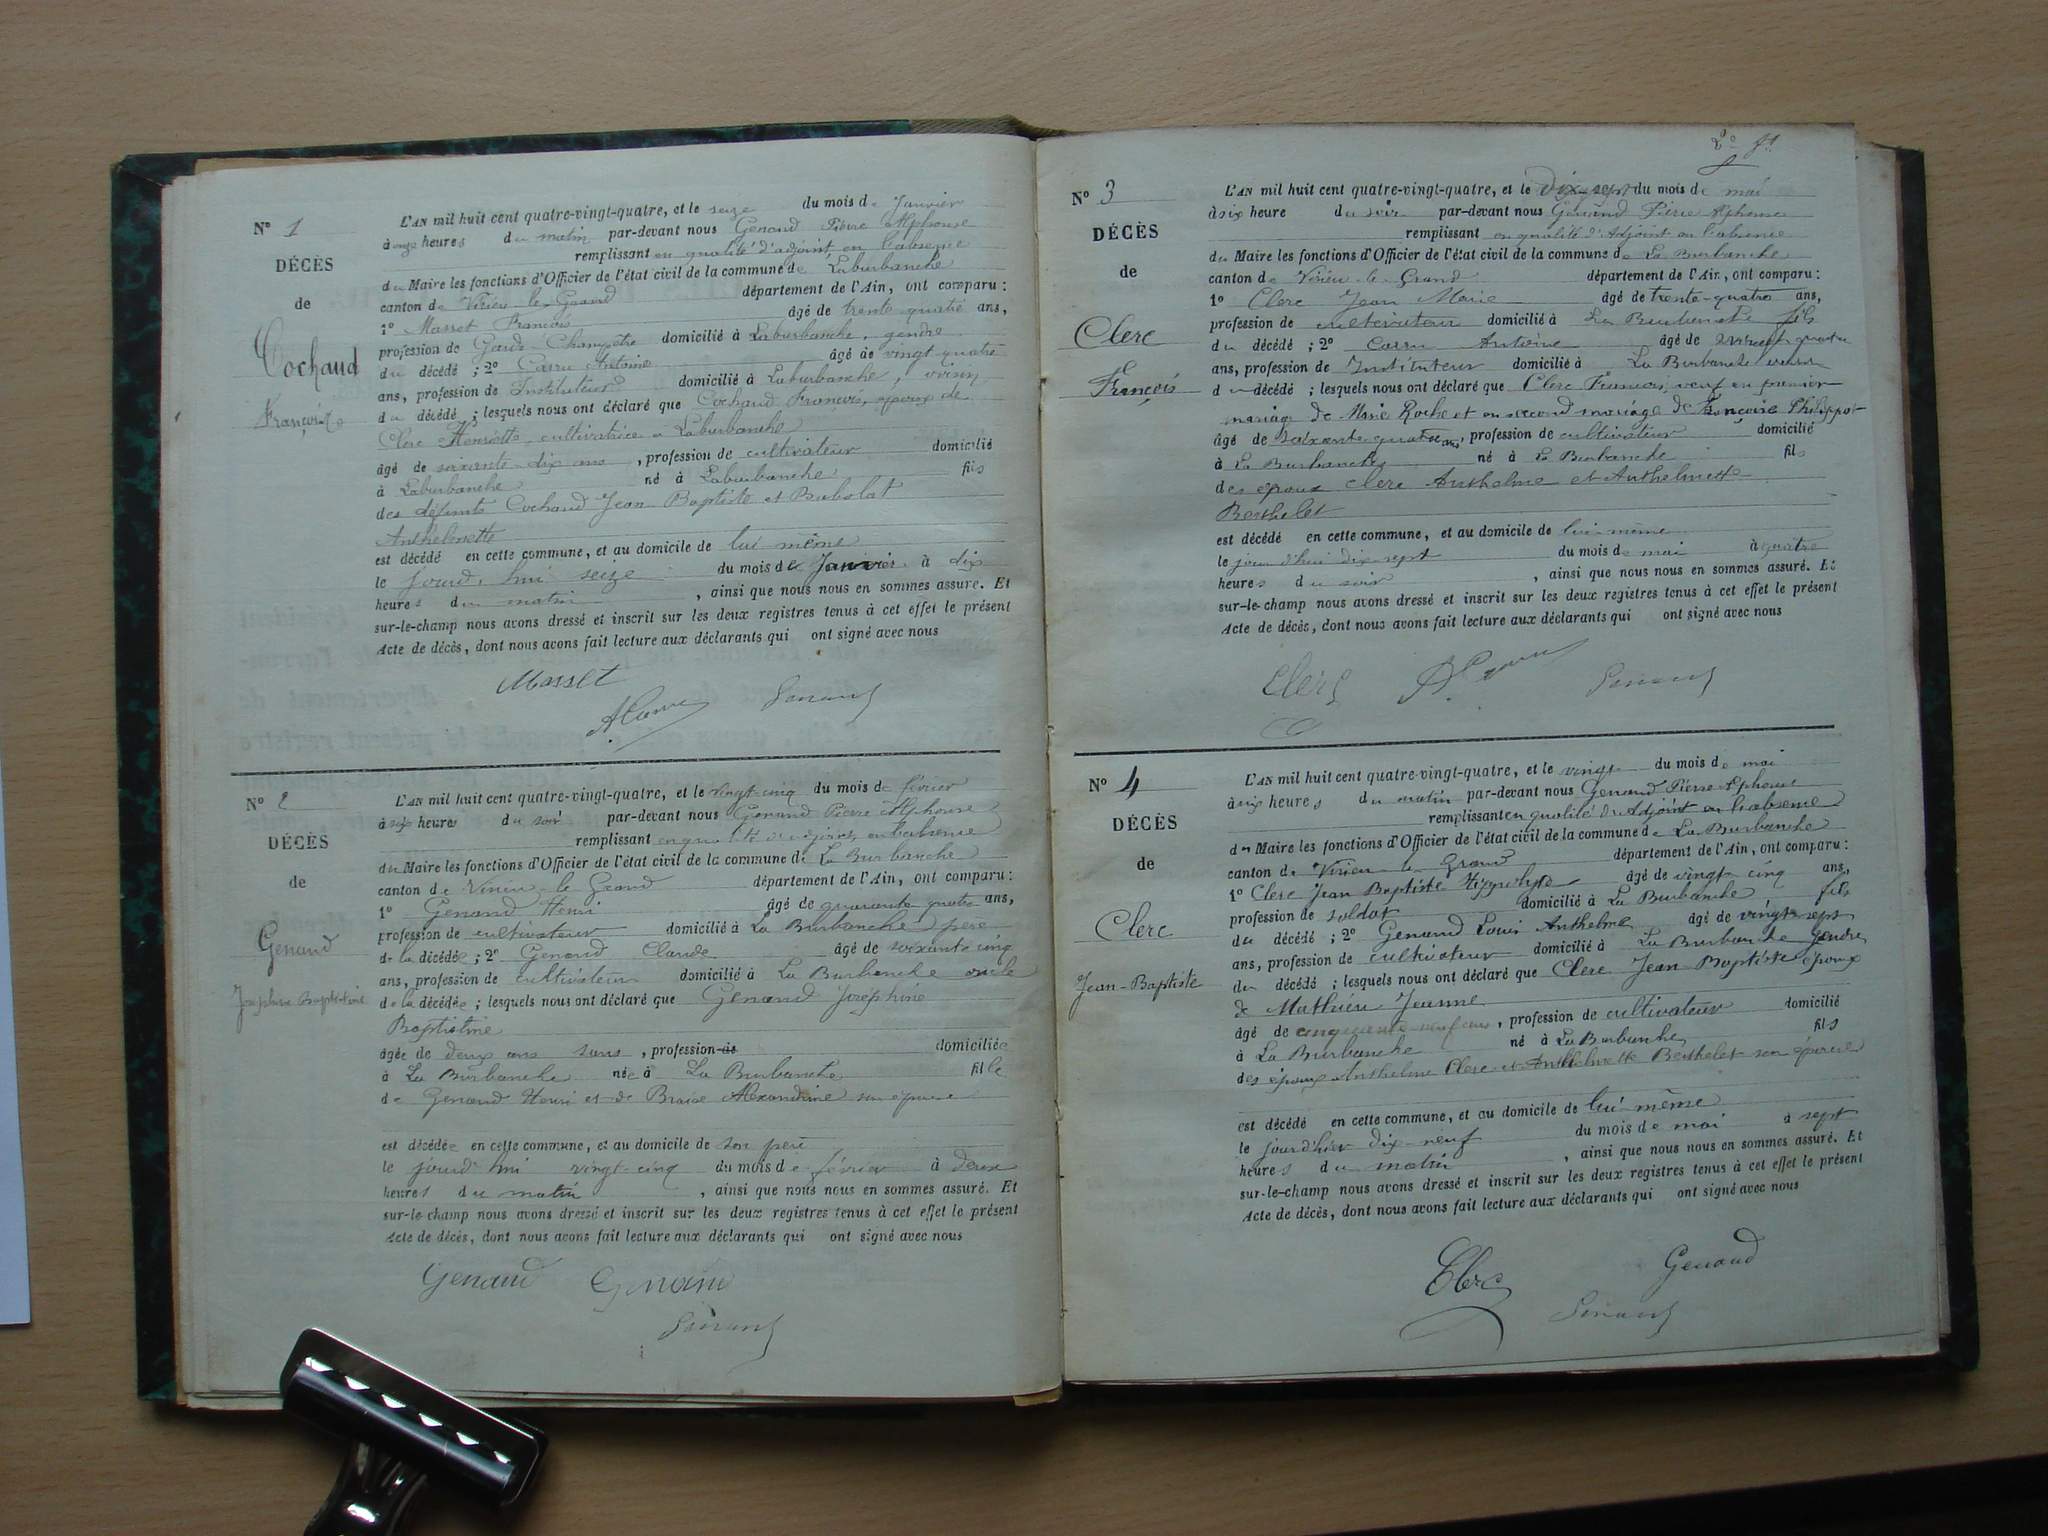 N° 1
DÉCÈS
de
Cochaud
François
L'AN mil huit cent quatre-vingt-quatre, et le seize du mois de Janvier
à onze heures du matin par-devant nous Genand Pierre Alphonse
remplissant en qualité d'adjoint en l'absence
du Maire les fonctions d'Officier de l'état civil de la commune de Laburbanche
canton de Virieu-le-Grand département de l'Ain, ont comparu :
1° Masset François âgé de trente quatre ans,
profession de Garde-Champêtre domicilié à Laburbanche, gendre
du décédé ; 2° Carru Antoine âgé de vingt-quatre
ans, profession de Instituteur domicilié à Laburbanche, voisin
du décédé ; lesquels nous ont déclaré que Cochaud François, époux de
Clerc Henriette, cultivatrice à Laburbanche
âgé de soixante-dix ans, profession de cultivateur domicilié
à Laburbanche né à Laburbanche fils
des défunts Cochaud Jean-Baptiste et Bubolat
Anthelmette
est décédé en cette commune, et au domicile de lui même
le jourd'hui seize du mois de Janvier à dix
heures du matin, ainsi que nous nous en sommes assuré. Et
sur-le-champ nous avons dressé et inscrit sur les deux registres tenus à cet effet le présent
Acte de décès, dont nous avons fait lecture aux déclarants qui ont signé avec nous
Masset
Genand
N° 2
DÉCÈS
de
Genand
Joséphine Baptistine
L'AN mil huit cent quatre-vingt-quatre, et le vingt-cinq du mois de février
à six heures du soir par-devant nous Genand Pierre Alphonse
remplissant en qualité d'adjoint, en l'absence
du Maire les fonctions d'Officier de l'état civil de la commune de La Burbanche
canton de Virieu-le-Grand département de l'Ain, ont comparu :
1° Genand Henri âgé de quarante quatre ans,
profession de cultivateur domicilié à La Burbanche père
de la décédée ; 2° Genand Claude âgé de soixante cinq
ans, profession de cultivateur domicilié à La Burbanche oncle
de la décédée ; lesquels nous ont déclaré que Genand Joséphine
Baptistine
âgée de deux ans sans, profession de domiciliée
à La Burbanche née à La Burbanche fille
de Genand Henri et de Alexandrine son épouse
est décédée en cette commune, et au domicile de son père
le jourd'hui vingt-cinq du mois de février à deux
heures du matin, ainsi que nous nous en sommes assuré. Et
sur-le-champ nous avons dressé et inscrit sur les deux registres tenus à cet effet le présent
Acte de décès, dont nous avons fait lecture aux déclarants qui ont signé avec nous
Genaud Genand
Genand
N° 3
DÉCÈS
de
Clerc
François
L'AN mil huit cent quatre-vingt-quatre, et le Dix-sept du mois de mai
à six heure du soir par-devant nous Genand Pierre Alphonse
remplissant en qualité d'Adjoint en l'absence
du Maire les fonctions d'Officier de l'état civil de la commune de La Burbanche
canton de Virieu-le-Grand département de l'Ain, ont comparu :
1° Clerc Jean Marie âgé de trente-quatre ans,
profession de cultivateur domicilié à La Burbanche fils
du décédé ; 2° Carru Antoine âgé de vingt-quatre
ans, profession de Instituteur domicilié à La Burbanche voisin
du décédé ; lesquels nous ont déclaré que Clerc François, veuf en premier
mariage de Marie Roche et en second mariage de Françoise Philippot
âgé de soixante-quatre ans, profession de cultivateur domicilié
à La Burbanche né à La Burbanche fils
des époux Clerc Anthelme et Anthelmette
Berthelet
est décédé en cette commune, et au domicile de lui-même
le jourd'hui dix-sept du mois de mai à quatre
heures du soir, ainsi que nous nous en sommes assuré. Et
sur-le-champ nous avons dressé et inscrit sur les deux registres tenus à cet effet le présent
Acte de décès, dont nous avons fait lecture aux déclarants qui ont signé avec nous
Clerc Genand
N° 4
DÉCÈS
de
Clerc
Jean-Baptiste
L'AN mil huit cent quatre-vingt-quatre, et le vingt du mois de mai
à six heures du matin par-devant nous Genand Pierre Alphonse
remplissant en qualité d'Adjoint en l'absence
du Maire les fonctions d'Officier de l'état civil de la commune de La Burbanche
canton de Virieu-le-Grand département de l'Ain, ont comparu :
1° Clerc Jean Baptiste Hippolyte âgé de vingt cinq ans,
profession de soldat domicilié à La Burbanche fils
du décédé ; 2° Genand Louis Anthelme âgé de vingt-sept
ans, profession de cultivateur domicilié à La Burbanche gendre
du décédé ; lesquels nous ont déclaré que Clerc Jean Baptiste époux
de Mathieu Jeanne
âgé de cinquante-neuf ans, profession de cultivateur domicilié
à La Burbanche né à La Burbanche fils
des époux Anthelme Clerc et Anthelmette Berthelet son épouse
est décédé en cette commune, et au domicile de lui-même
le jourd'hier dix-neuf du mois de mai à sept
heures du matin, ainsi que nous nous en sommes assuré. Et
sur-le-champ nous avons dressé et inscrit sur les deux registres tenus à cet effet le présent
Acte de décès, dont nous avons fait lecture aux déclarants qui ont signé avec nous
Clerc Genand
Genand